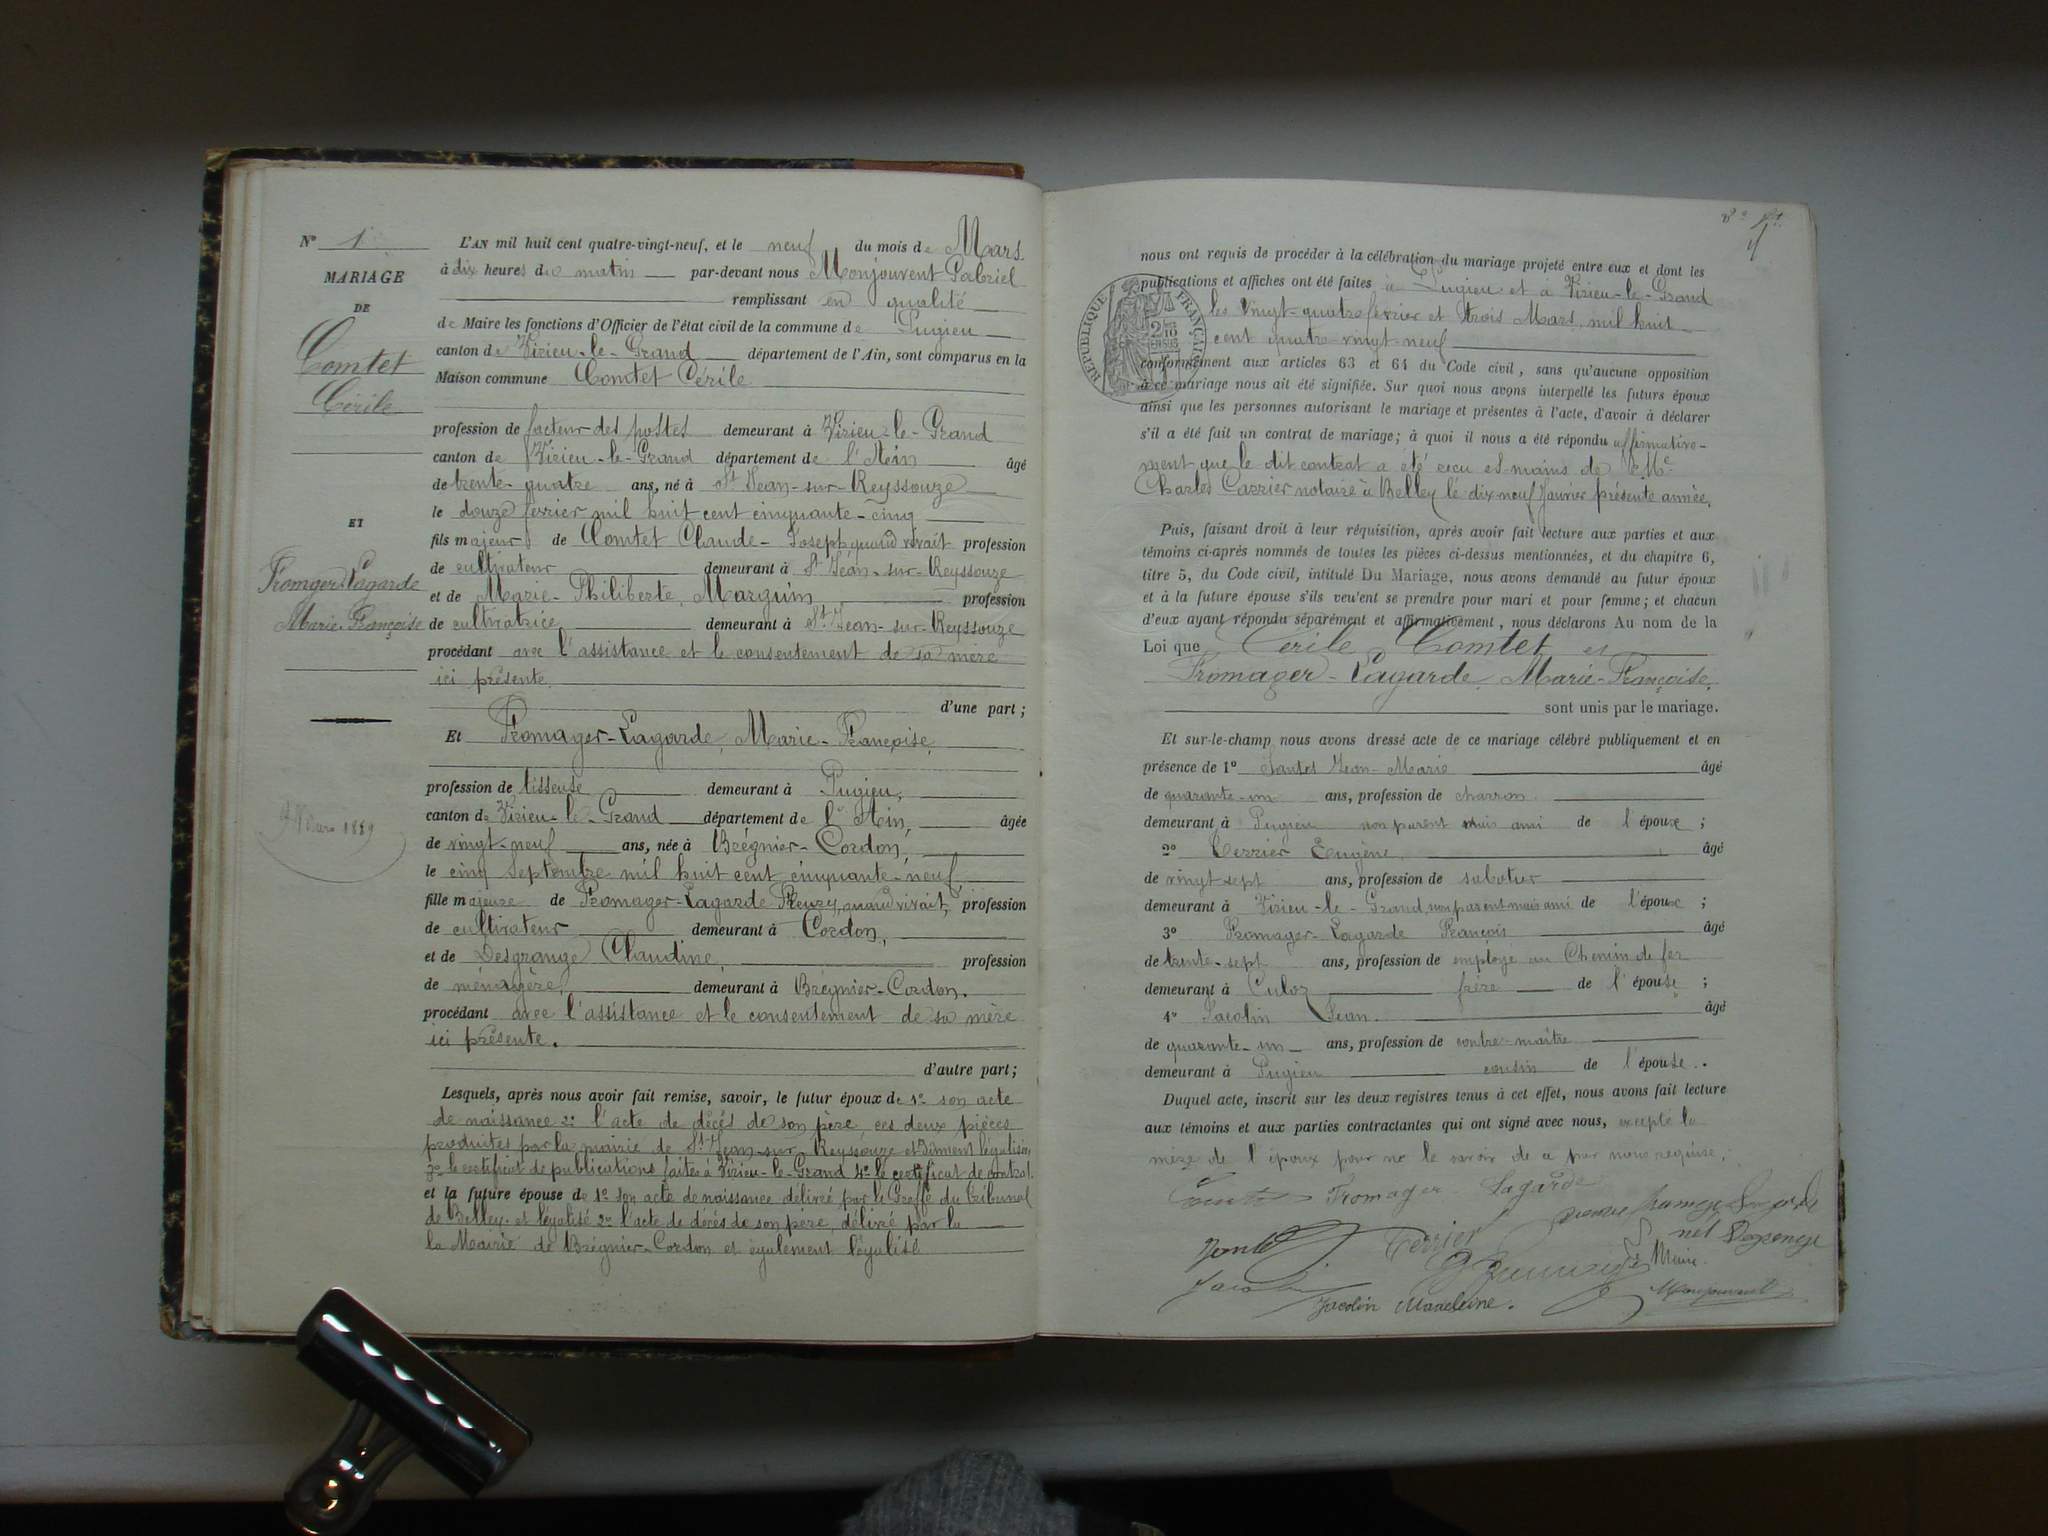 N° 1
MARIAGE
DE
Comtet
Cérile
ET
Fromager-Lagarde
Marie-Françoise
9 Mars 1889
L'AN mil huit cent quatre-vingt-neuf, et le neuf du mois de Mars
à dix heures du matin par-devant nous Monjouvent Gabriel
remplissant en qualité
de Maire les fonctions d'Officier de l'état civil de la commune de Pugieu
canton de Virieu-le-Grand département de l'Ain, sont comparus en la
Maison commune Comtet Cérile
profession de facteur des postes demeurant à Virieu-le-Grand
canton de Virieu-le-Grand département de l'Ain âgé
de trente-quatre ans, né à St Jean-sur-Reyssouze
le douze février mil huit cent cinquante-cinq
fils majeur de Comtet Claude-Joseph quand vivait profession
de cultivateur demeurant à St Jean-sur-Reyssouze
et de Marie-Philiberte Marguin profession
de cultivatrice demeurant à St Jean-sur-Reyssouze
procédant avec l'assistance et le consentement de sa mère
ici présente.
d'une part ;
Et Fromager-Lagarde, Marie-Françoise,
profession de tisseuse demeurant à Pugieu,
canton de Virieu-le-Grand département de l'Ain, âgée
de vingt-neuf ans, née à Brégnier-Cordon,
le cinq Septembre mil huit cent cinquante-neuf,
fille majeure de Fromager-Lagarde Fleury, quand vivait, profession
de cultivateur demeurant à Cordon,
et de Desgrange Claudine, profession
de ménagère, demeurant à Brégnier-Cordon.
procédant avec l'assistance et le consentement de sa mère
ici présente.
d'autre part ;
Lesquels, après nous avoir fait remise, savoir, le futur époux de 1° son acte
de naissance 2° l'acte de décès de son père, ces deux pièces
produites par la mairie de St Jean-sur-Reyssouze et dûment légalisées
3° le certificat de publications faites à Virieu-le-Grand 4° le certificat de contrat.
et la future épouse de 1° son acte de naissance délivré par le Greffe du tribunal
de Belley et légalisé 2° l'acte de décès de son père, délivré par la
la Mairie de Brégnier-Cordon et également légalisé
nous ont requis de procéder à la célébration du mariage projeté entre eux et dont les
publications et affiches ont été faites à Pugieu et à Virieu-le-Grand
les vingt-quatre février et trois Mars mil huit
cent quatre-vingt-neuf
RÉPUBLIQUE FRANÇAISE
conformément aux articles 63 et 64 du Code civil, sans qu'aucune opposition
à ce mariage nous ait été signifiée. Sur quoi nous avons interpellé les futurs époux
ainsi que les personnes autorisant le mariage et présentes à l'acte, d'avoir à déclarer
s'il a été fait un contrat de mariage; à quoi il nous a été répondu affirmative-
ment que le dit contrat a été reçu es-mains de Me
Charles Carrier notaire à Belley le dix-neuf Janvier présente année.
Puis, faisant droit à leur réquisition, après avoir fait lecture aux parties et aux
témoins ci-après nommés de toutes les pièces ci-dessus mentionnées, et du chapitre 6,
titre 5, du Code civil, intitulé Du Mariage, nous avons demandé au futur époux
et à la future épouse s'ils veu'ent se prendre pour mari et pour femme; et chacun
d'eux ayant répondu séparément et affirmativement, nous déclarons Au nom de la
Loi que Cérile Comtet et
Fromager-Lagarde, Marie-Françoise,
sont unis par le mariage.
Et sur-le-champ nous avons dressé acte de ce mariage célébré publiquement et en
présence de 1° Jean-Marie âgé
de quarante-un ans, profession de charron
demeurant à Pugieu non parent mais ami de l'époux ;
2° Terrier Eugène, âgé
de vingt sept ans, profession de sabotier
demeurant à Virieu-le-Grand, non parent mais ami de l'époux ;
3° Fromager-Lagarde François âgé
de trente-sept ans, profession de employé au Chemin de fer
demeurant à Culoz frère de l'épouse ;
4° Jacolin Jean. âgé
de quarante-un ans, profession de contre-maître
demeurant à Pugieu cousin de l'épouse .
Duquel acte, inscrit sur les deux registres tenus à cet effet, nous avons fait lecture
aux témoins et aux parties contractantes qui ont signé avec nous, excepté la
mère de l'époux pour ne le savoir de a par nous requise.
Comtet Fromager Lagarde
Terrier
Le Maire
Jacolin Madeleine.
Monjouvent